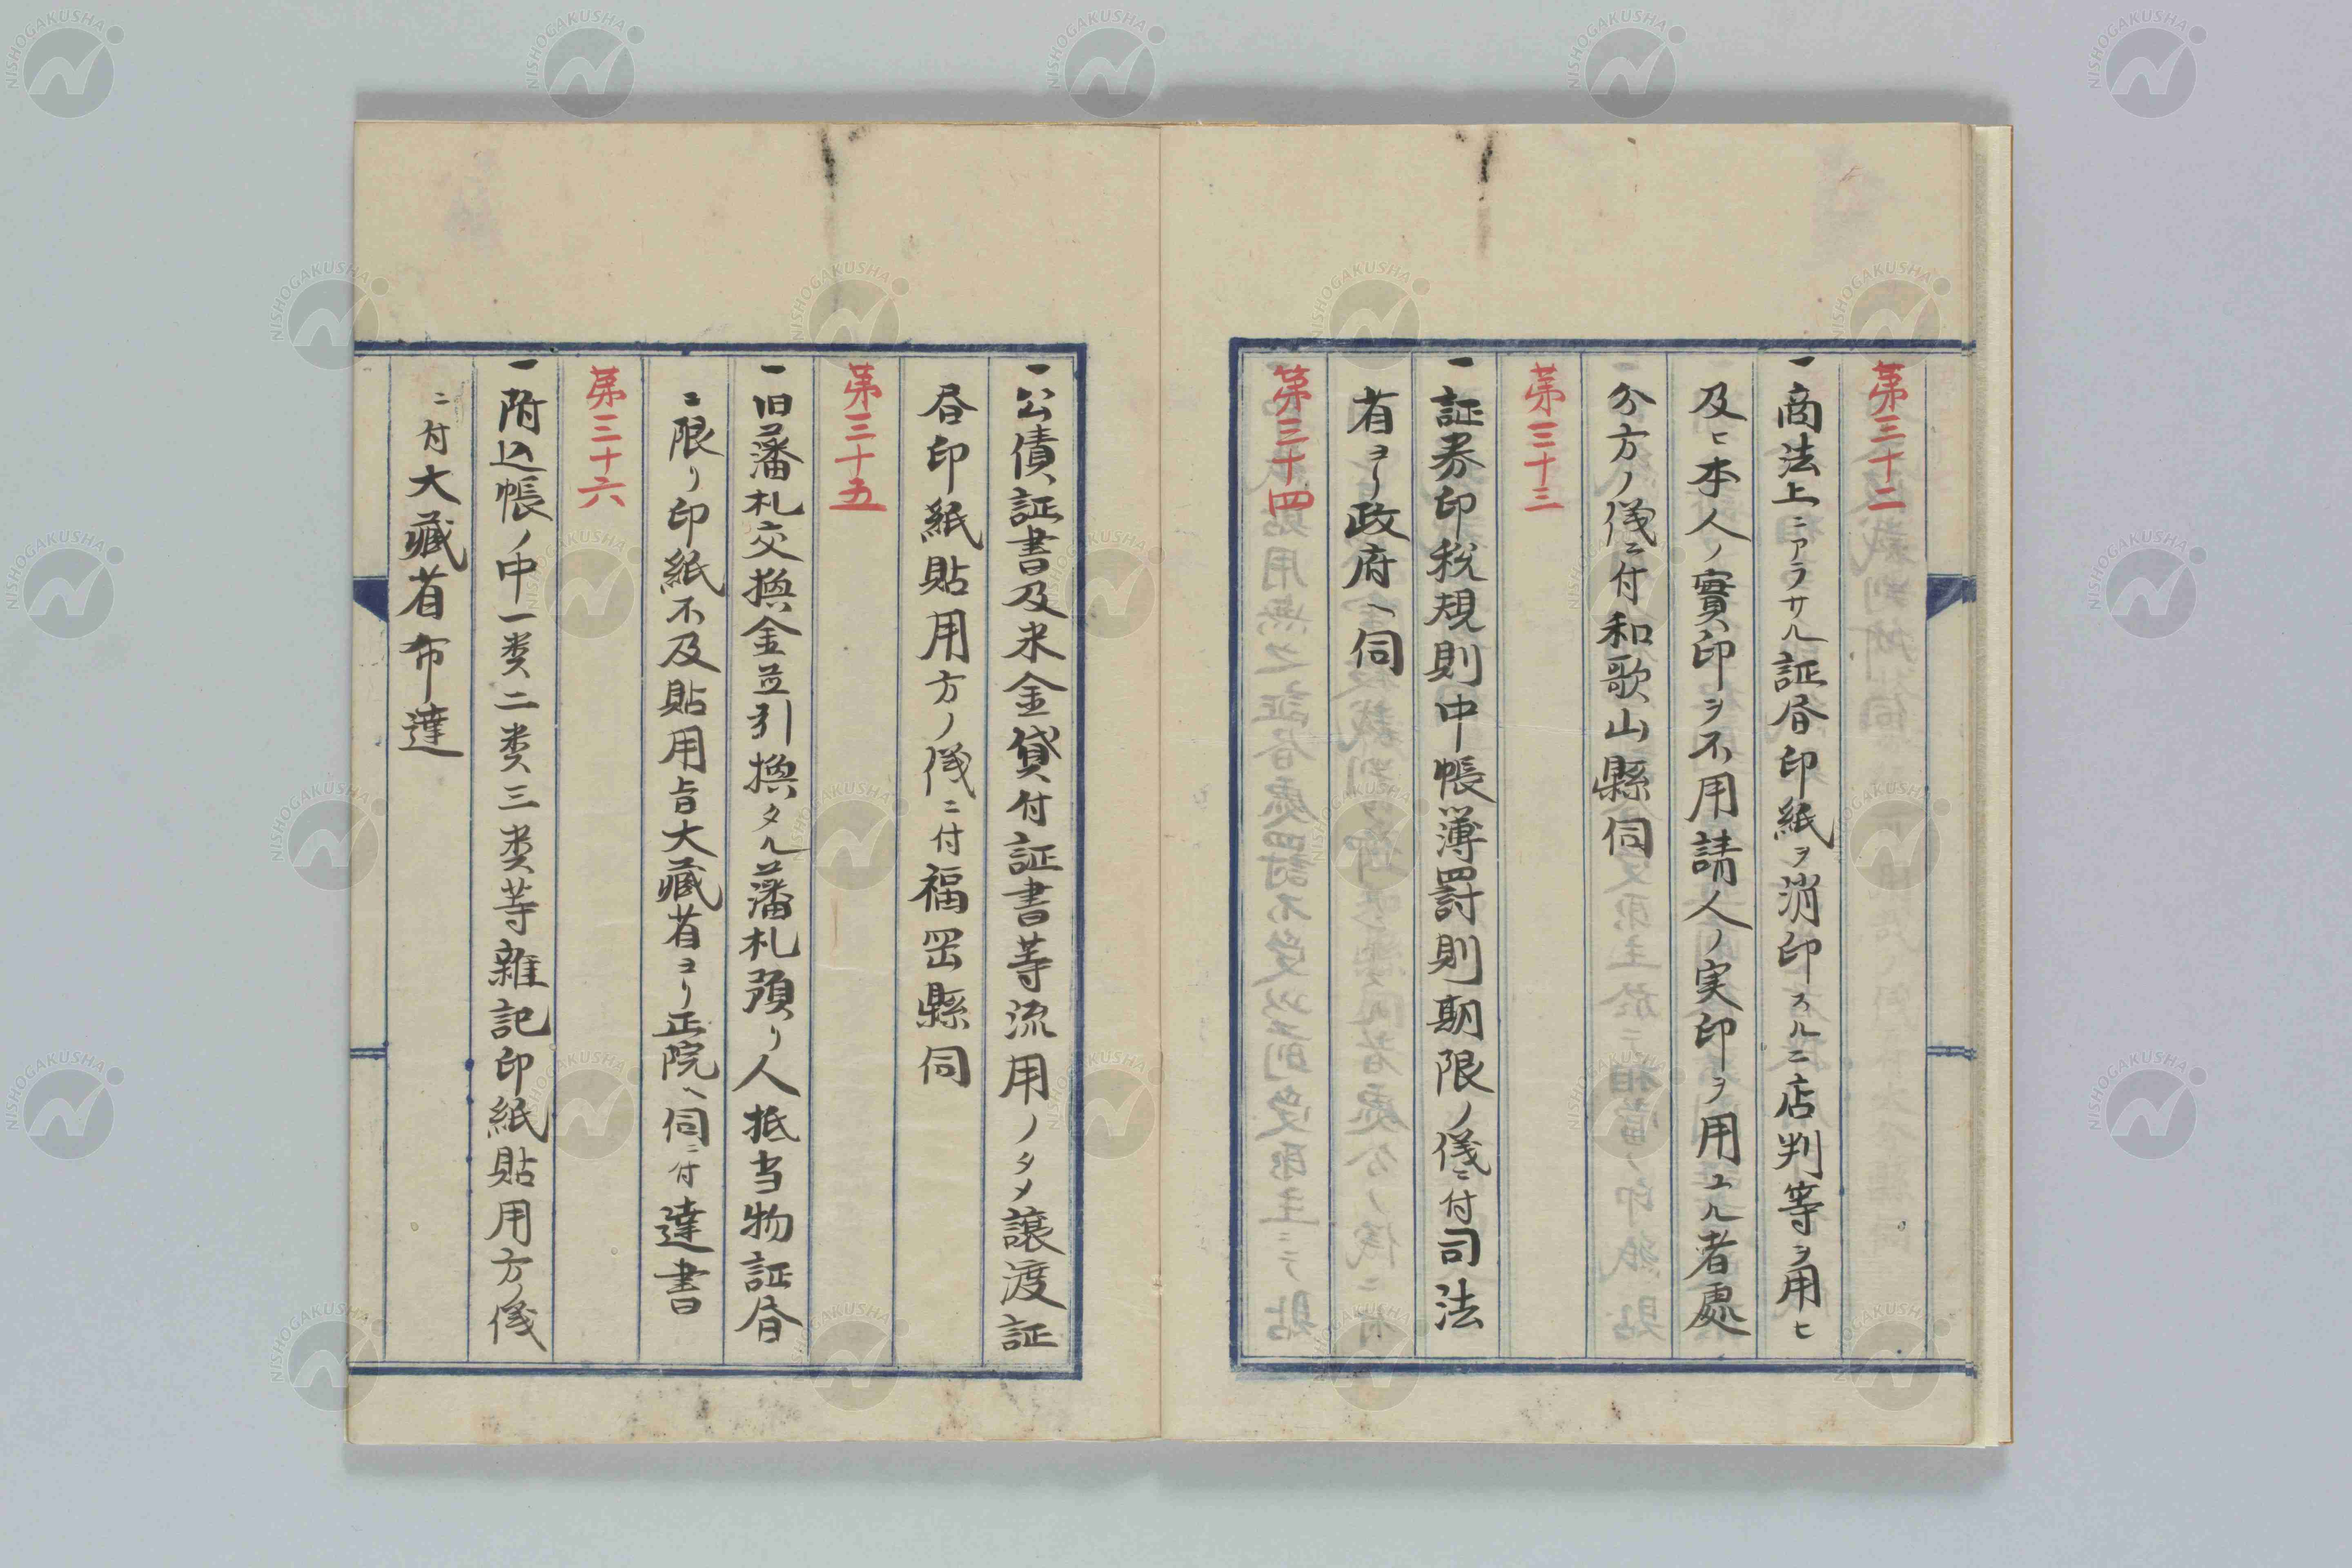 第三十二
一商法上ニアラサル証书印紙ヲ消印スルニ店判等ヲ用ヒ
及ヒ本人ノ實印ヲ不用請人ノ実印ヲ用ユル者處
分方ノ儀ニ付和歌山縣伺
第三十三
一証券印税規則中帳簿罸則期限ノ儀ニ付司法
省ヨリ政府ヘ伺
第三十四
一公債証書及米金貸付証書等流用ノタメ譲渡証
书印紙貼用方ノ儀ニ付福岡縣伺
第三十五
一旧藩札交換金並引換タル藩札預リ人抵当物証书
ニ限リ印紙不及貼用旨大藏省ヨリ正院ヘ伺ニ付達書
第三十六
一附込帳ノ中一类二类三类等雜記印紙貼用方ノ儀
ニ付大藏省布達
NISHOGAKUSHA